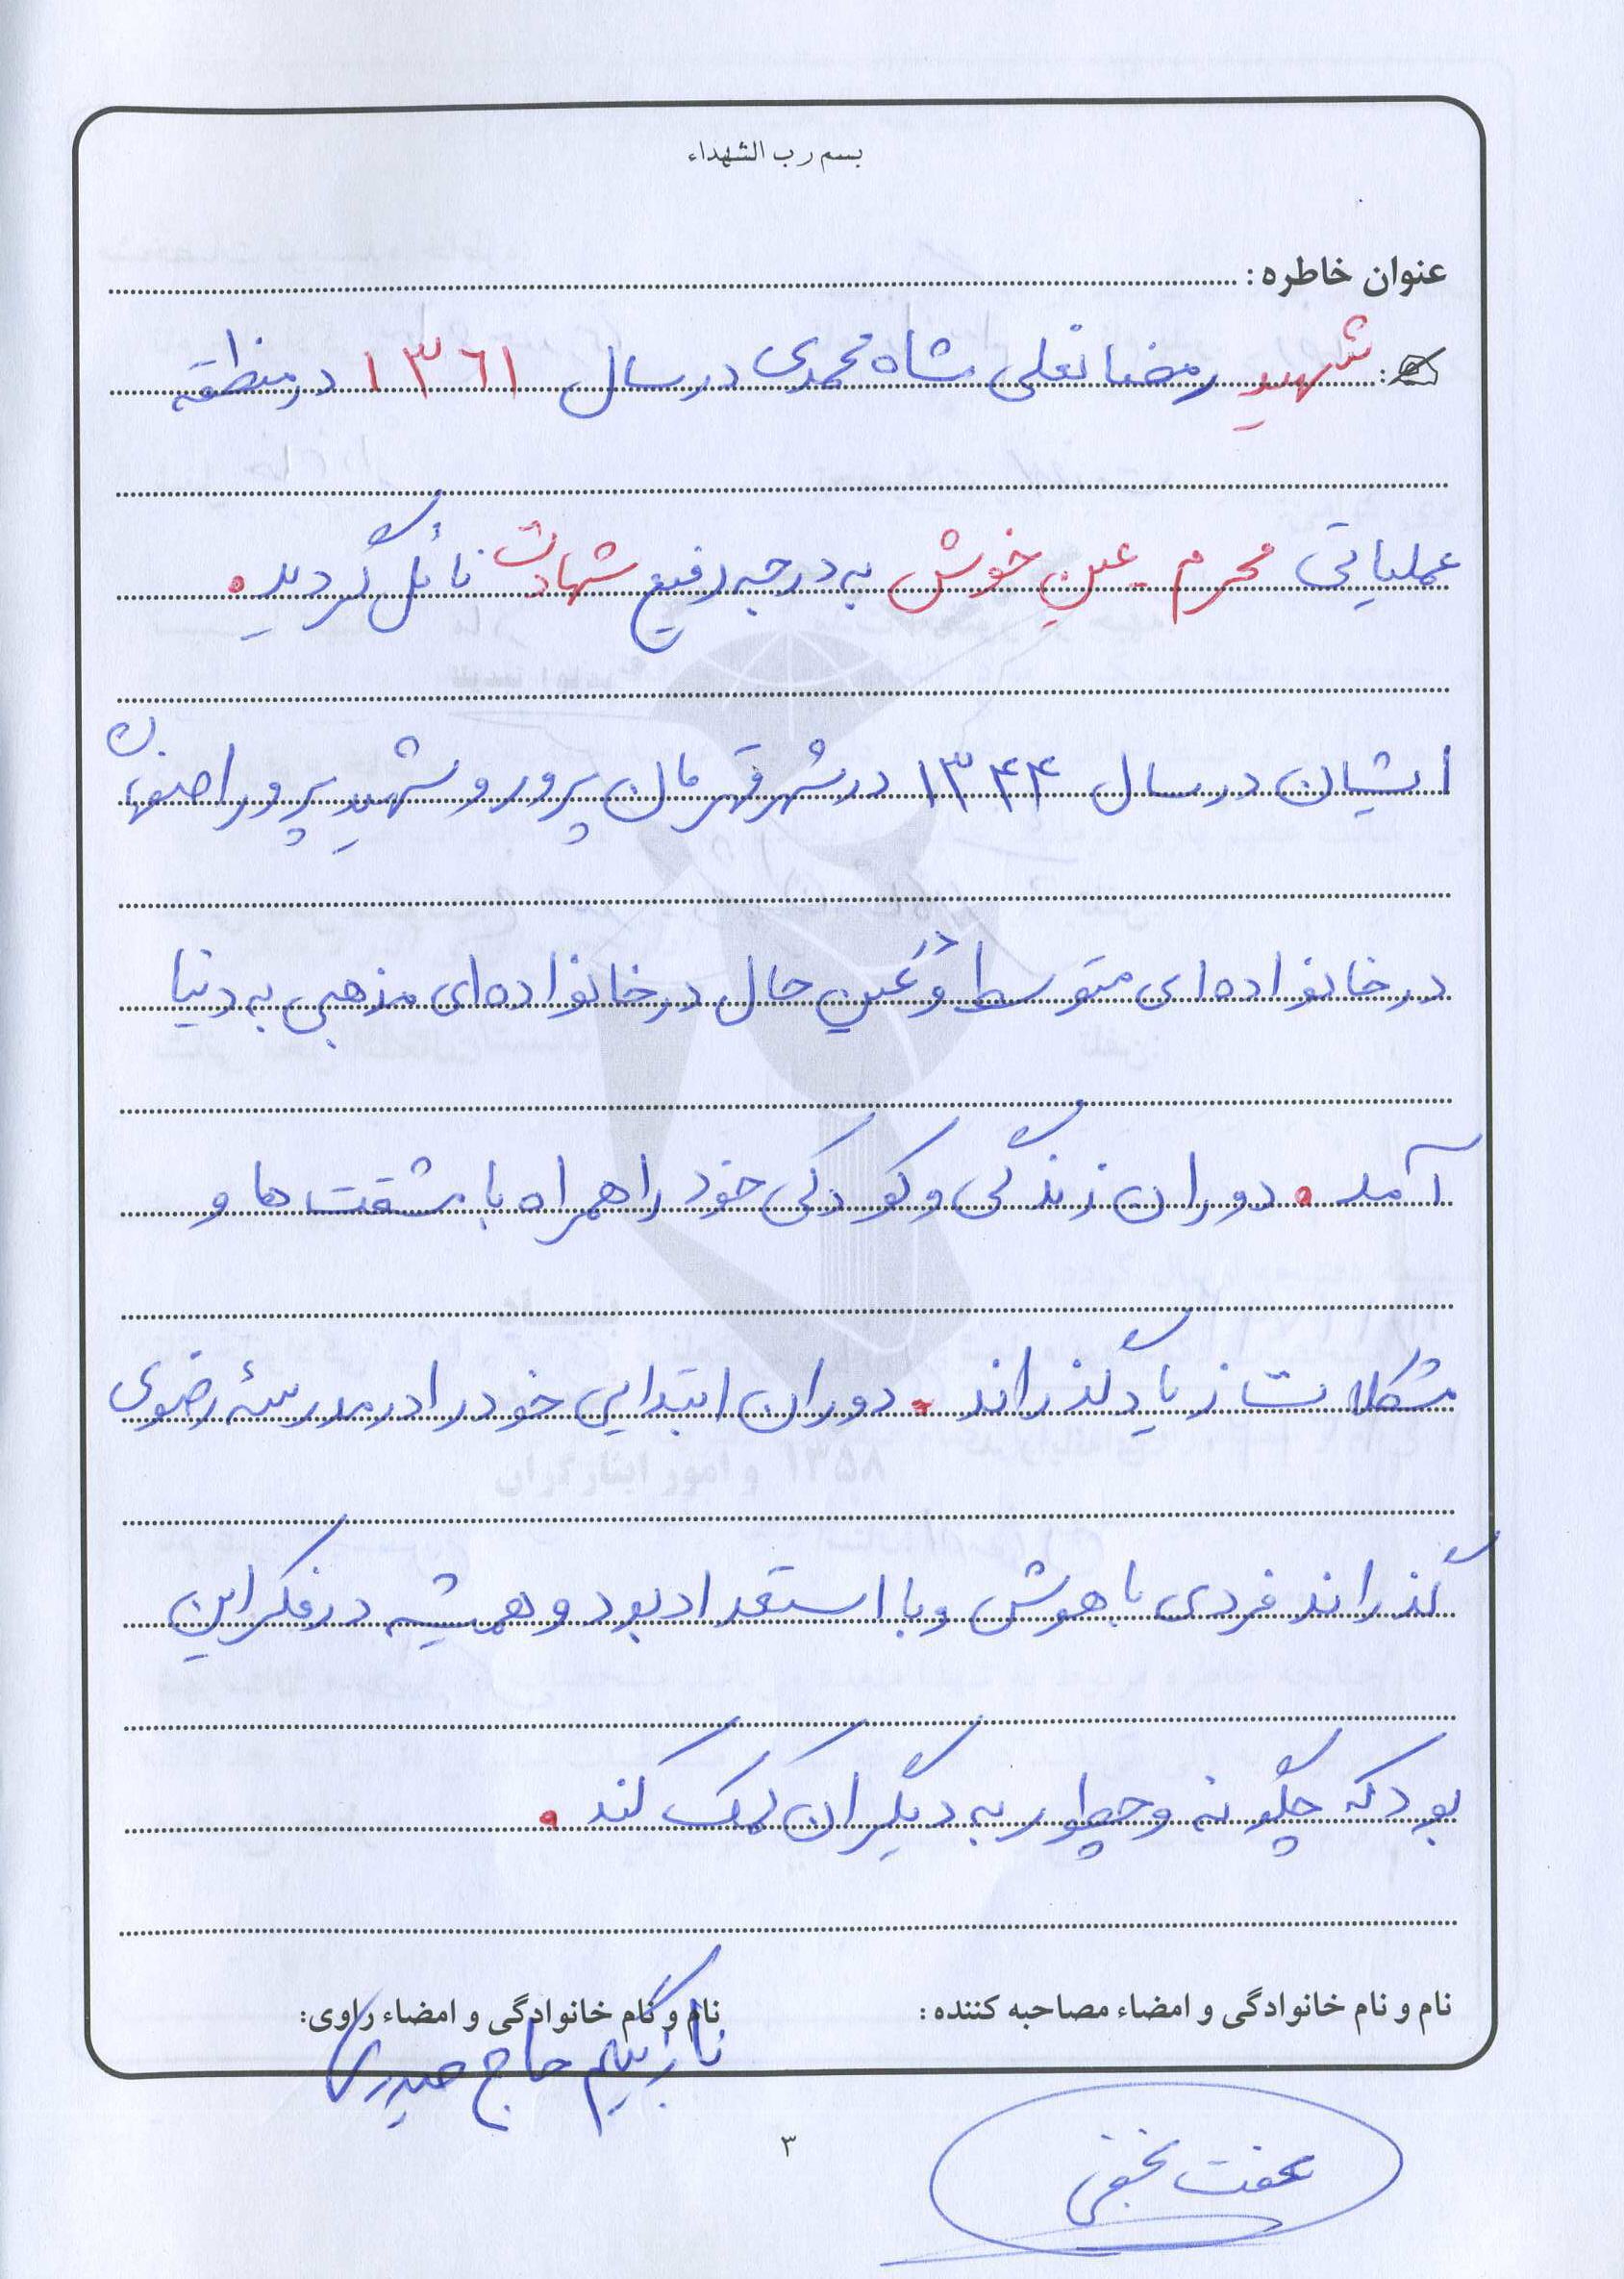 بسم رب الشهداء
عنوان خاطره:
شهید رمضانعلی شاه محمدی در سال ۱۳۶۱ در منطقه
عملیاتی محرم - عین خوش به درجه رفیع شهادت نائل گردید.
ایشان در سال ۱۳۴۴ در شهر قهرمان پرور و شهید پرور اصفهان
در خانواده ای متوسط و در عین حال در خانواده ای مذهبی به دنیا
آمد. دوران زندگی و کودکی خود را همراه با مشقت ها و
مشکلات زیاد گذراند. دوران ابتدایی خود را در مدرسۀ رضوی
گذراند فردی با هوش و با استعداد بود و همیشه در فکر این
بود که چگونه و چطور به دیگران کمک کند.
نام و نام خانوادگی و امضاء مصاحبه کننده:
نام و نام خانوادگی و امضاء راوی:
حاج حیدری
عفت نجفی
۳